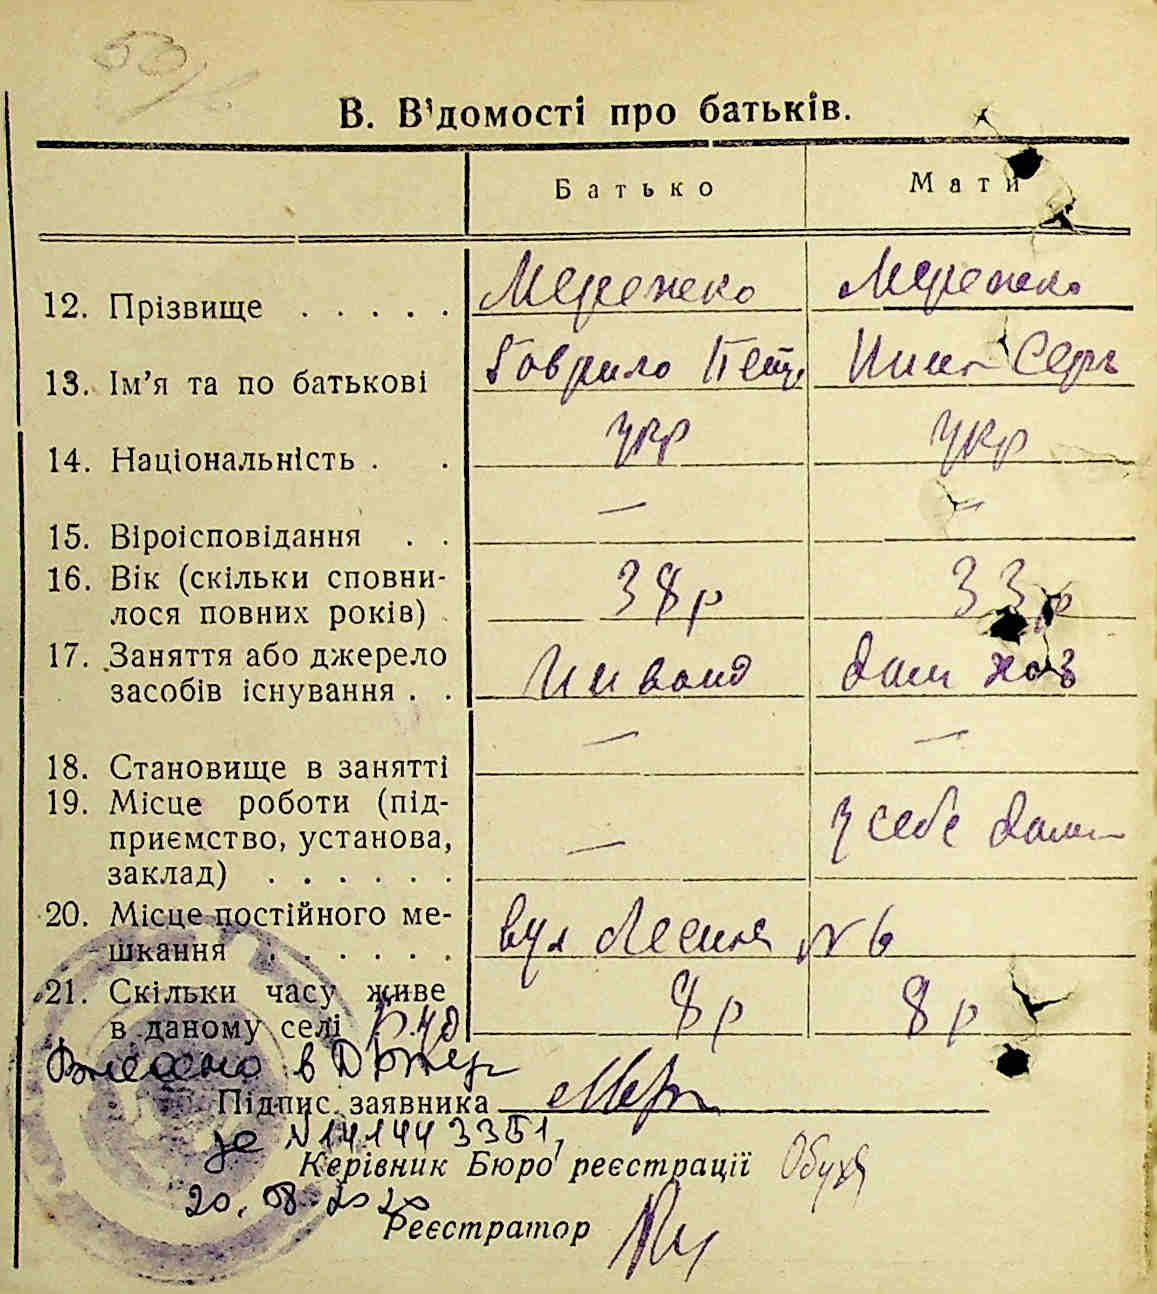 В. В'домості про батьків.
Батько Мати
12. Прізвище . . . . . Мережко Мережко
13. Ім'я та по батькові Гаврило Петр Нина Серг
14. Національність . . укр укр
15. Віроісповідання . . — —
16. Вік (скільки сповни-
лося повних років) . 38 р 33 р
17. Заняття або джерело
засобів існування . . Инвалид дом хоз
18. Становище в занятті — —
19. Місце роботи (під-
приємство, установа,
заклад) . . . . . . — у себе дома
20. Місце постійного ме-
шкання . . . . . . вул Лесная N 6
21. Скільки часу живе
в даному селі 8 р 8 р
Внесено в ДРАЦС
Підпис заявника Мер
за N 14144335 1,
Керівник Бюро реєстрації
20.08.2020
Реєстратор